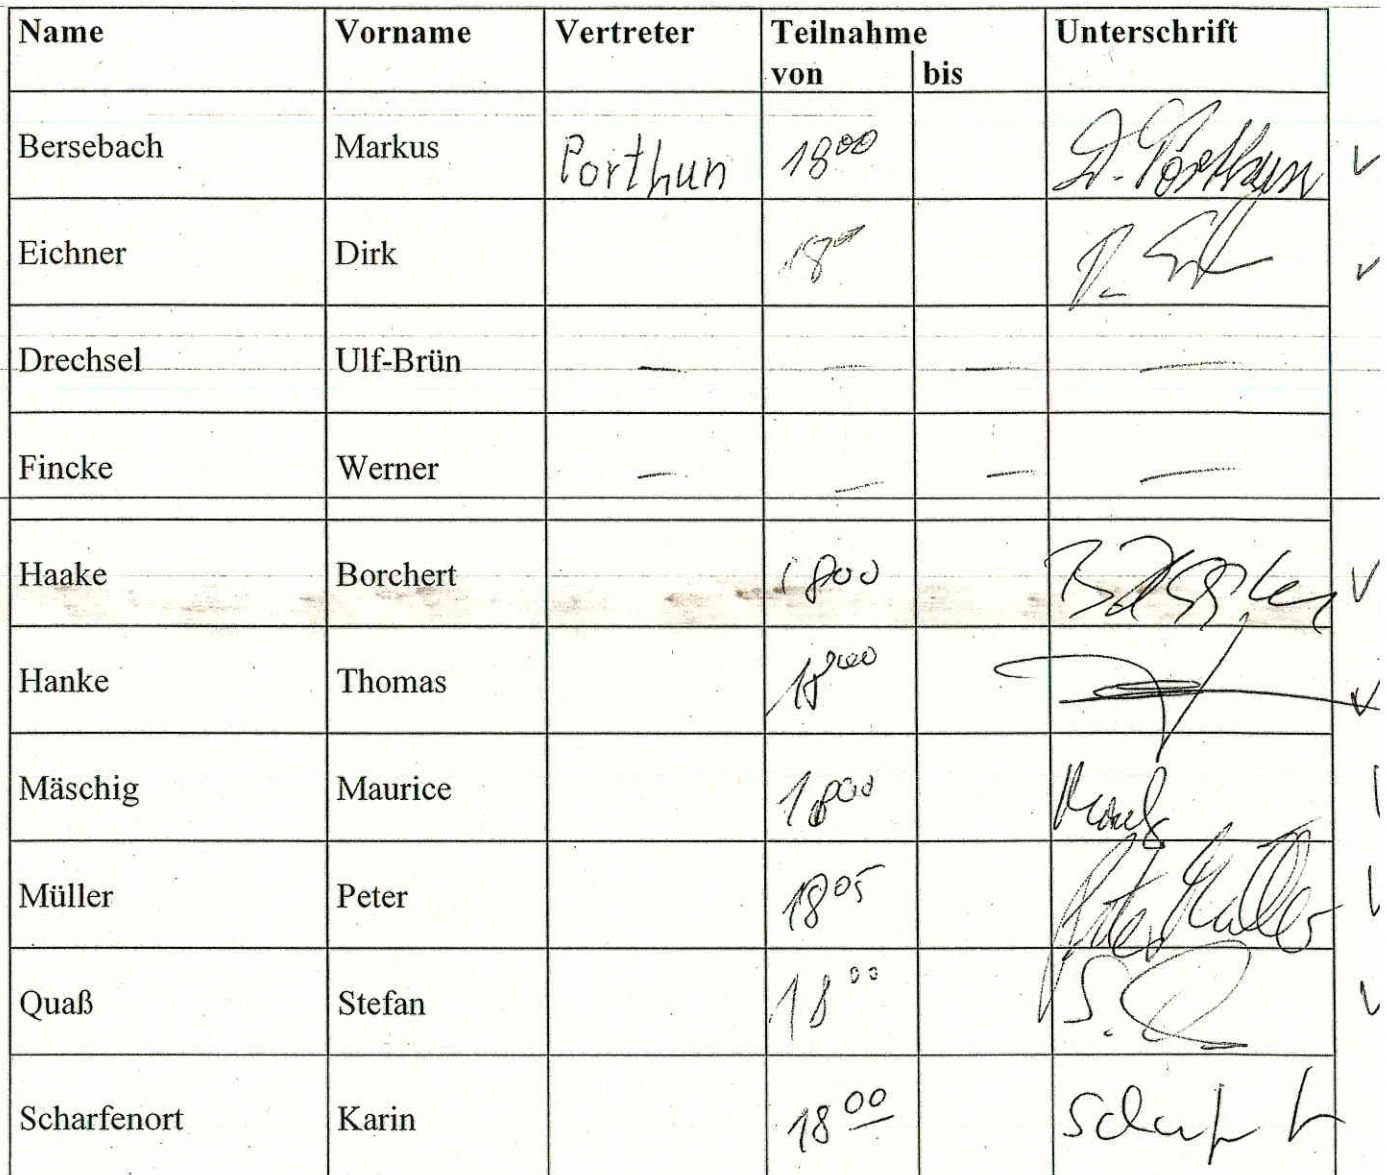 Name Vorname Vertreter Teilnahme Unterschrift
von bis
Bersebach Markus Porthun 18⁰⁰ D. Porthun
Eichner Dirk 18⁰⁰
Drechsel Ulf-Brün — — — —
Fincke Werner — — — —
Haake Borchert 1800
Hanke Thomas 18⁰⁰
Mäschig Maurice 18⁰⁰
Müller Peter 18⁰⁵ Peter Müller
Quaß Stefan 18⁰⁰ S.
Scharfenort Karin 18⁰⁰